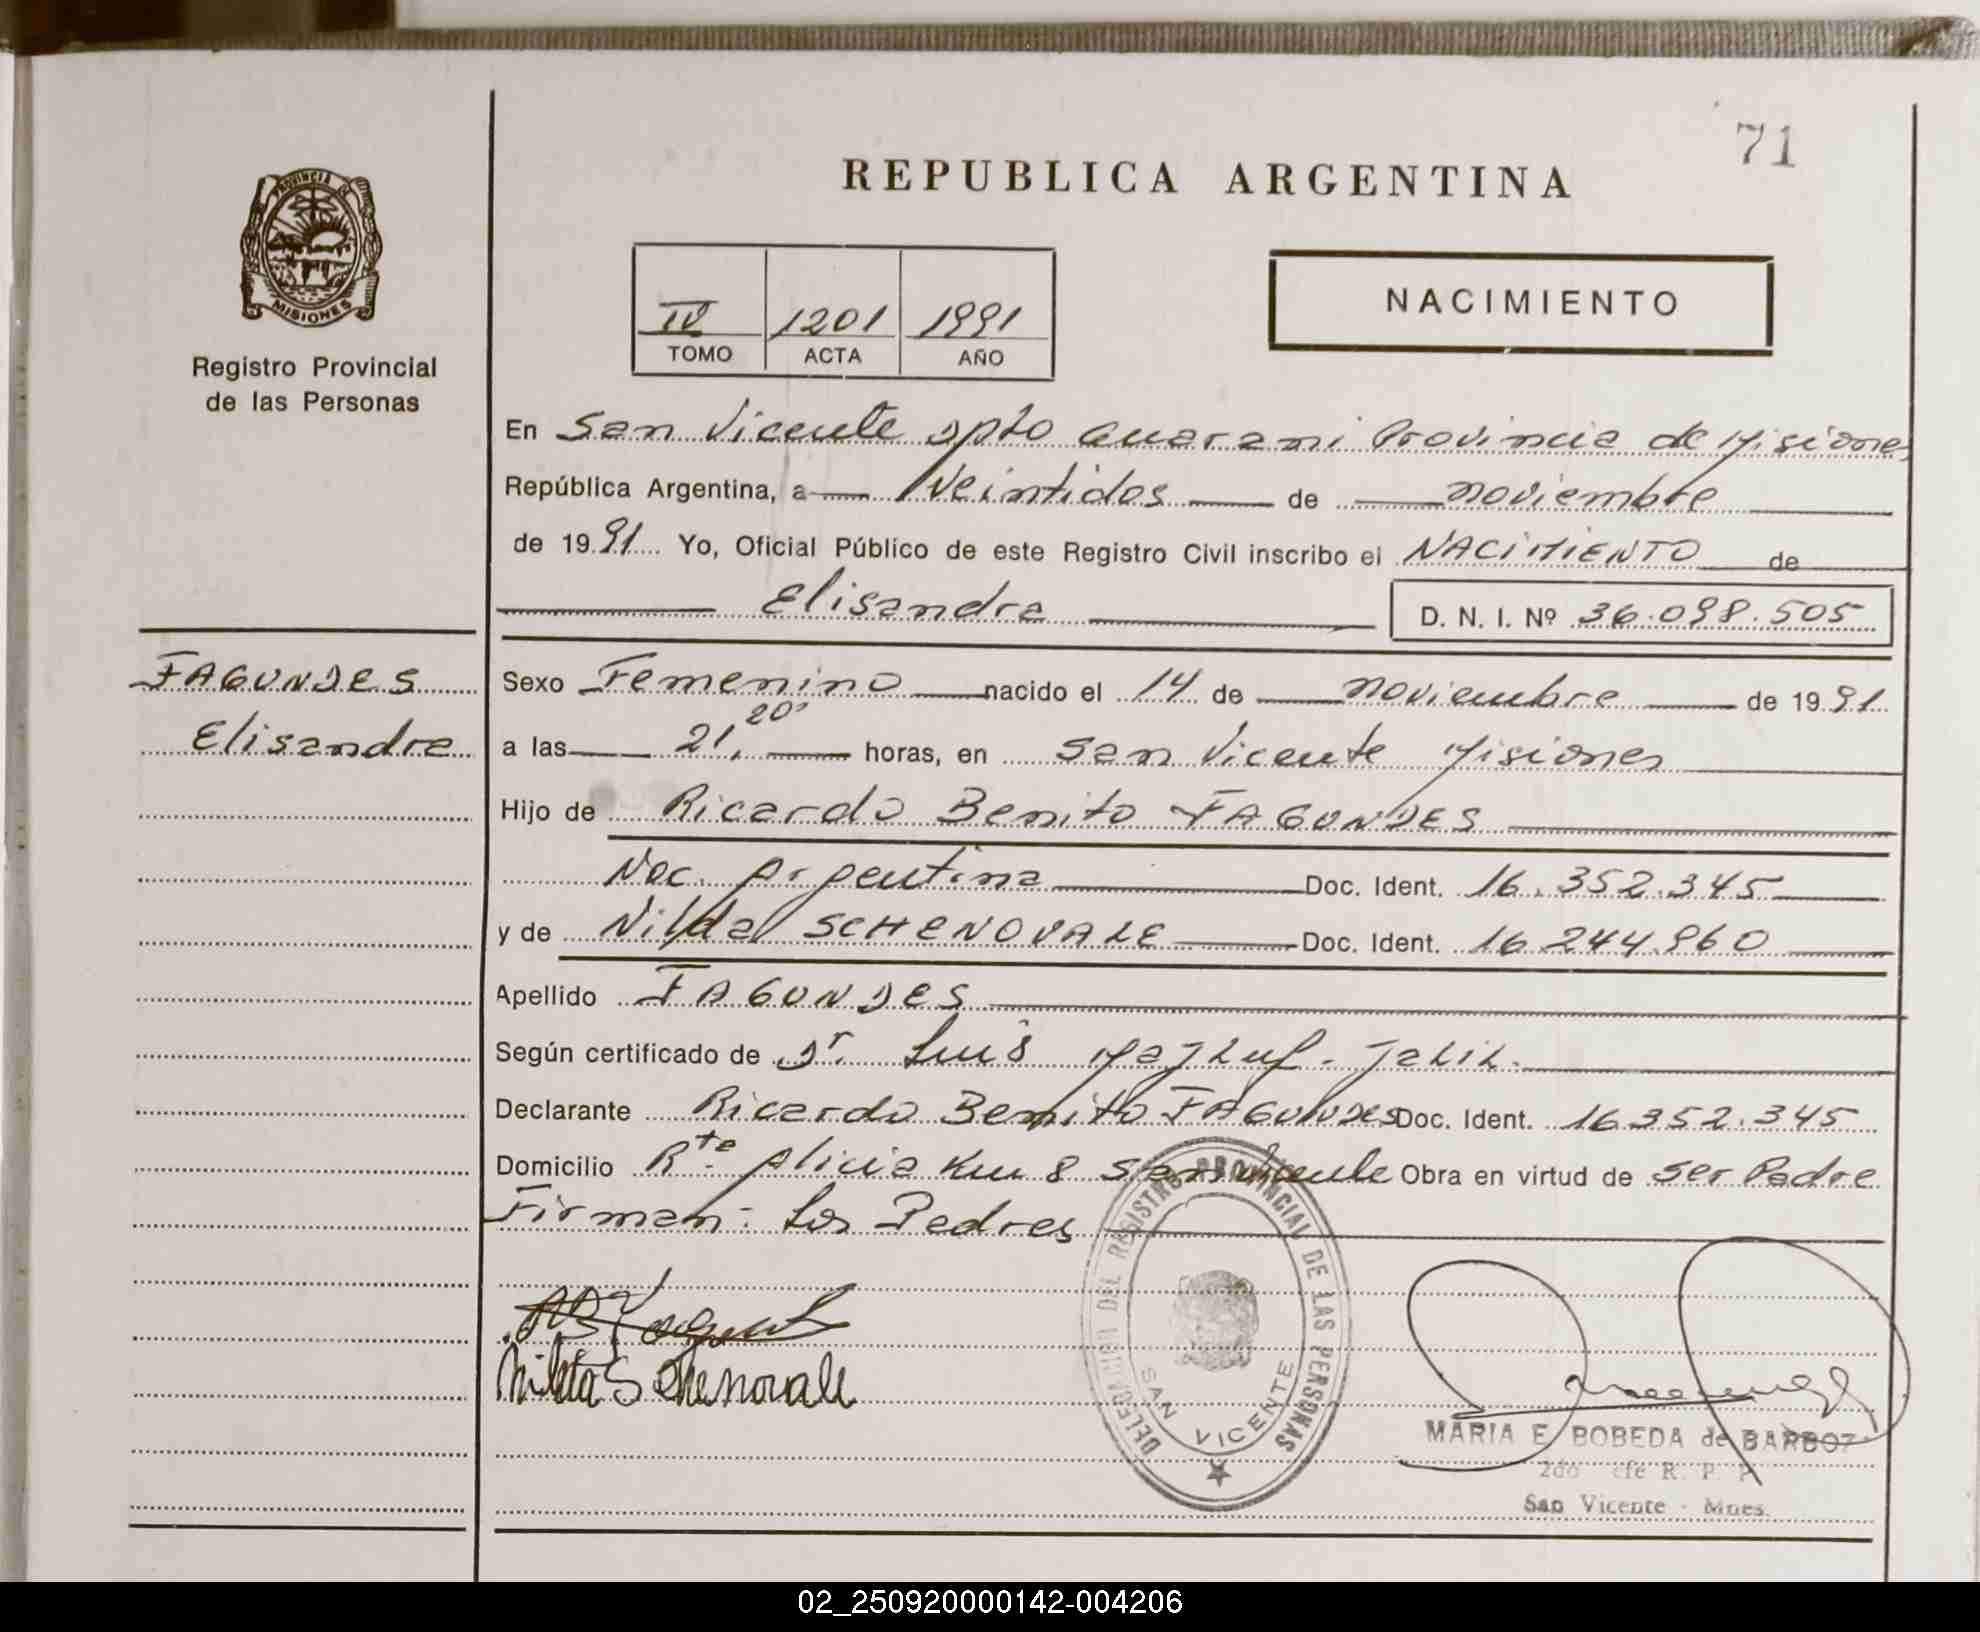 71
REPUBLICA ARGENTINA
PROVINCIA
MISIONES
Registro Provincial
de las Personas
IV 1201 1991
TOMO ACTA AÑO
NACIMIENTO
En San Vicente Dpto Guarani Provincia de Misiones
República Argentina, a Veintidos de noviembre
de 1991 Yo, Oficial Público de este Registro Civil inscribo el NACIMIENTO de
Elisandra D. N. I. Nº 36.098.505
FAGUNDES
Elisandra
Sexo Femenino nacido el 14 de noviembre de 1991
a las 21,20' horas, en San Vicente Misiones
Hijo de Ricardo Benito FAGUNDES
Nac. Argentina Doc. Ident. 16.352.345
y de Nilda SCHENOVALE Doc. Ident. 16.244.960
Apellido FAGUNDES
Según certificado de Dr. Luis Jalil.
Declarante Ricardo Benito FAGUNDES Doc. Ident. 16352.345
Domicilio Rta. Alicia Km 8 San Vicente Obra en virtud de ser Padre
Firman: Los Padres
Nilda Schenovale
DELEGACION DEL REGISTRO PROVINCIAL DE LAS PERSONAS
SAN VICENTE
MARIA E. BOBEDA de BARBOZ
2do efe R. P. P.
San Vicente - Mnes.
02_250920000142-004206